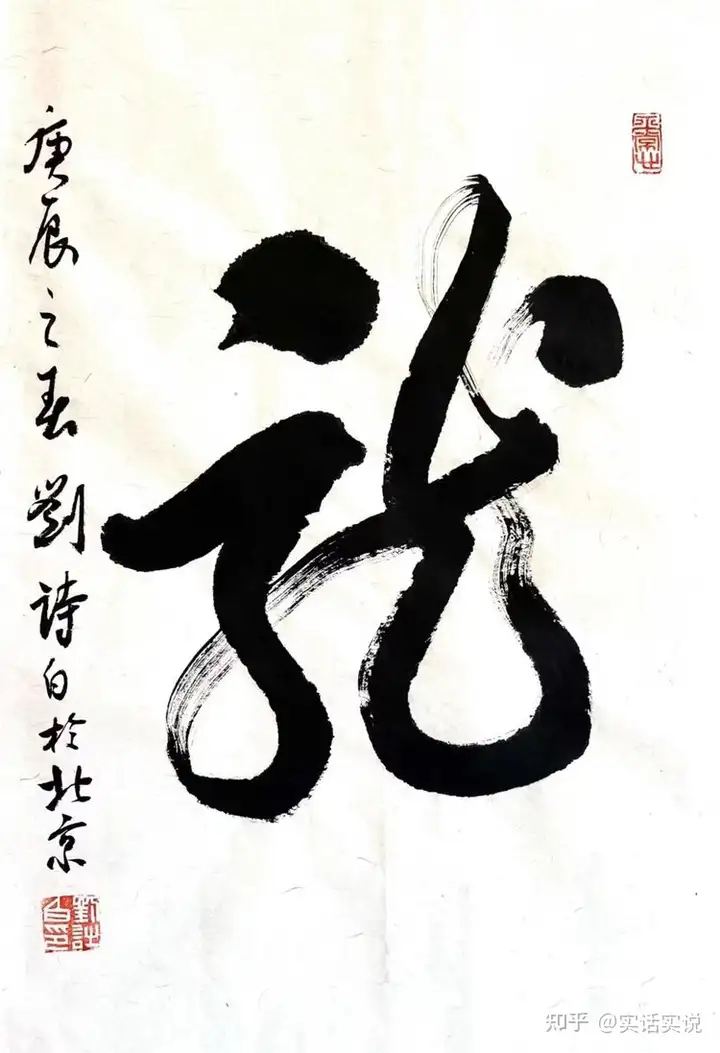 龍
庚辰之春 劉詩白於北京
劉詩白印
知乎 @实话实说